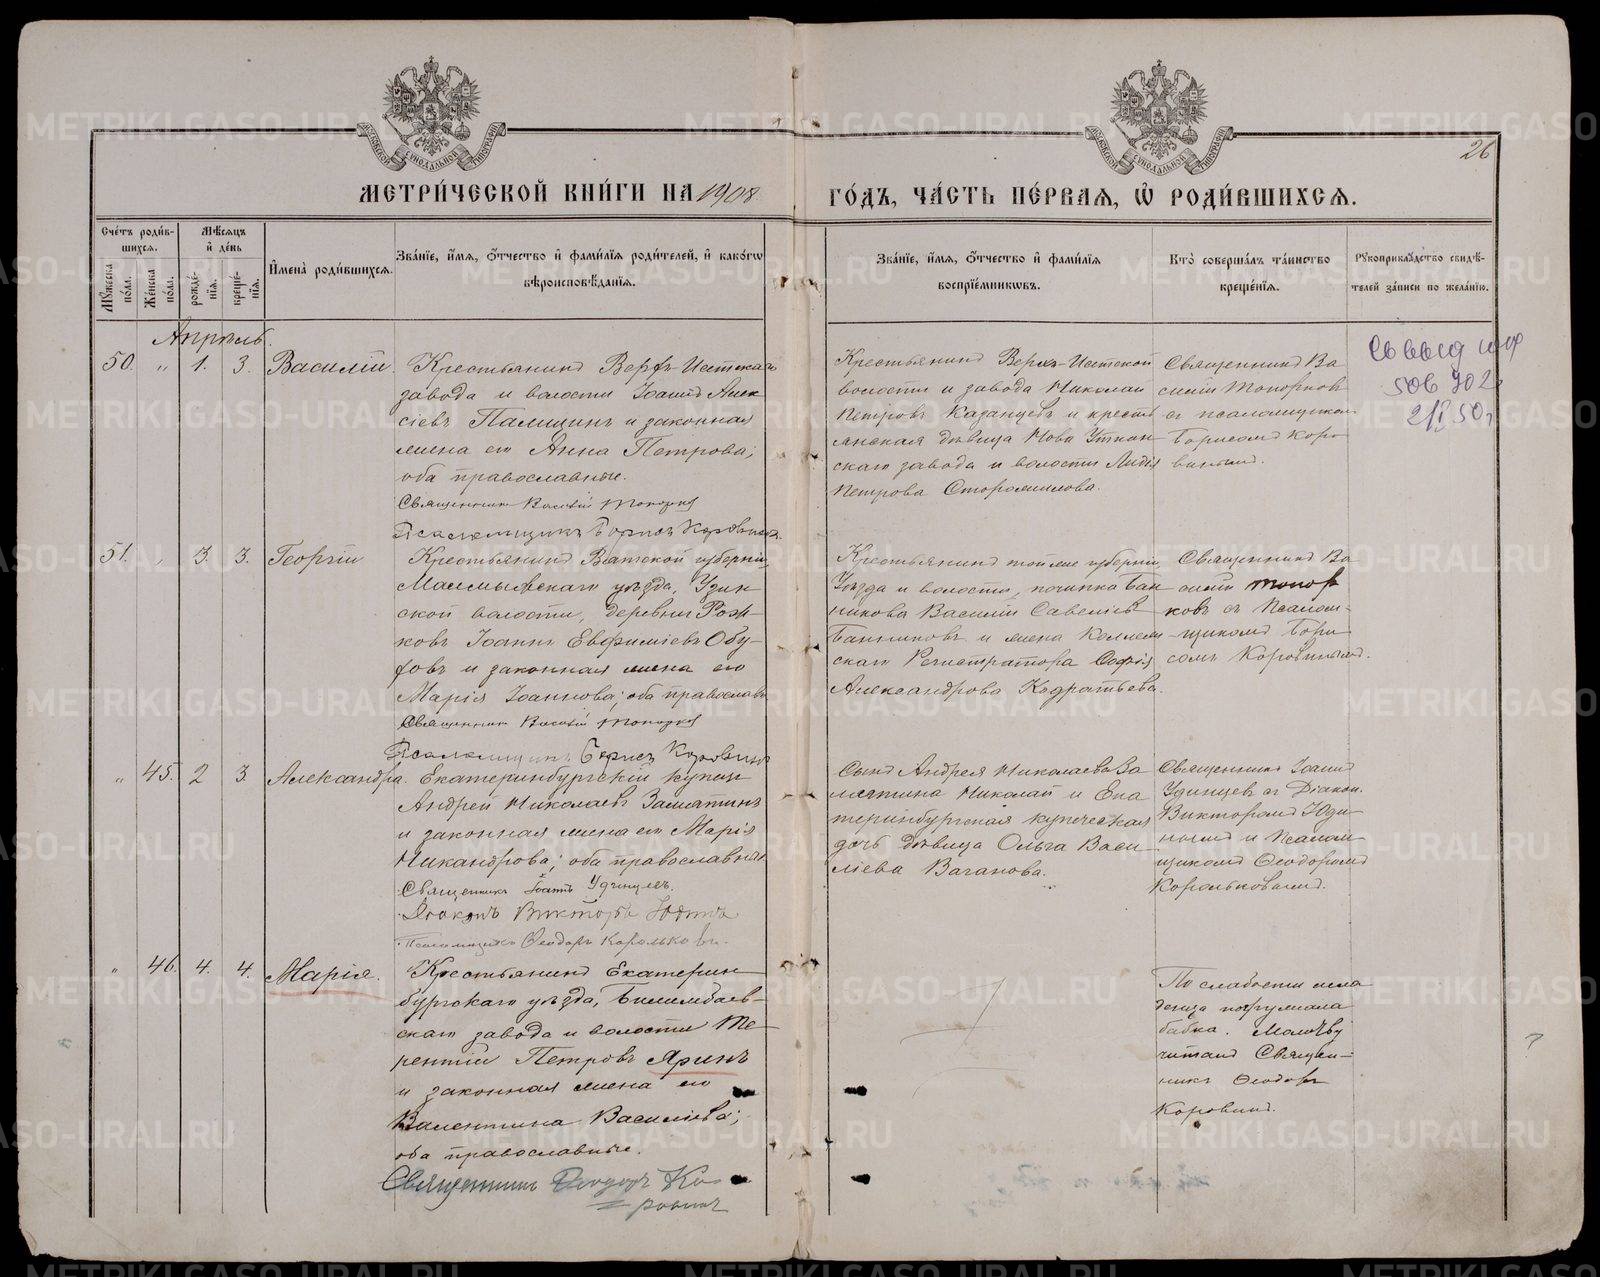 26
МЕТРИ́ЧЕСКОЙ КНИ́ГИ НА 1908
ГО́ДЪ, ЧА́СТЬ ПЕ́РВАЯ, Ѡ РОДИ́ВШИХСЯ.
Сче́тъ роди́в-
шихся.
Мѣ́сяцъ
и де́нь
Му́жеска по́ла.
Же́нска по́ла.
рожде́-
нїя.
креще́-
нїя.
И́мена роди́вшихся.
Зва́нїе, и́мя, о́тчество и фами́лїя роди́телей, и како́гѡ
вѣроисповѣ́данїя.
Зва́нїе, и́мя, о́тчество и фами́лїя
воспрїе́мникѡвъ.
Кто̀ соверша́лъ та́инство
креще́нїя.
Рꙋкоприкла́дство свидѣ́-
телей за́писи по жела́нїю.
Апрѣль.
50. „ 1. 3. Василій.
Крестьянинъ Верхъ-Исетскаго
завода и волости Іоаннъ Алек
сіевъ Палицинъ и законная
жена его Анна Петрова;
оба православные.
Священникъ Василій Топорков
Псаломщикъ Борисъ Коровинъ
Крестьянинъ Верхъ-Исетской
волости и завода Николай
Петровъ Казанцевъ и кресть
янская дѣвица Ново Уткин
скаго завода и волости Лидія
Петрова Сторожилова.
Священникъ Ва
силій Топорковъ
съ псаломщикомъ
Борисомъ Коро
винымъ.
51. „ 3. 3. Георгій
Крестьянинъ Вятской губерніи,
Малмыжскаго уѣзда, Узин
ской волости, деревни Рож-
ковъ Іоаннъ Евфиміевъ Обу-
ховъ и законная жена его
Марія Іоаннова; оба православ
Священникъ Василій Топорков
Псаломщикъ Борисъ Коровинъ
Крестьянинъ той же губерніи,
Уѣзда и волости, починка Бан
никова Василій Савеліевъ
Банниковъ и жена Коллеж
скаго Регистратора Софія
Александрова Кодратьева.
Священникъ Ва
силій Топор
ковъ съ Псалом-
щикомъ Бори
сомъ Коровинымъ.
„ 45. 2 3 Александра.
Екатеринбургскій купецъ
Андрей Николаевъ Замятинъ
и законная жена его Марія
Никандрова; оба православные
Священникъ Іоаннъ Удинцев.
Діаконъ Викторъ Юдинъ
Псаломщикъ Ѳеодоръ Корольковъ.
Сынъ Андрея Николаева За
мятина Николай и Ека
теринбургская купеческая
дочь дѣвица Ольга Васи
ліева Ваганова.
Священникъ Іоаннъ
Удинцевъ съ Діакон.
Викторомъ Юди
нымъ и Псалом
щикомъ Ѳеодоромъ
Корольковымъ.
„ 46. 4. 4. Марія.
Крестьянинъ Екатерин
бургскаго уѣзда, Билимбаев-
скаго завода и волости Те-
рентій Петровъ Яринъ
и законная жена его
Валентина Василіева;
оба православные.
Священникъ Ѳеодоръ Ко-
ровинъ
По слабости мла
денца погружала
бабка. Молитву
читалъ Священ-
никъ Ѳеодоръ
Коровинъ.